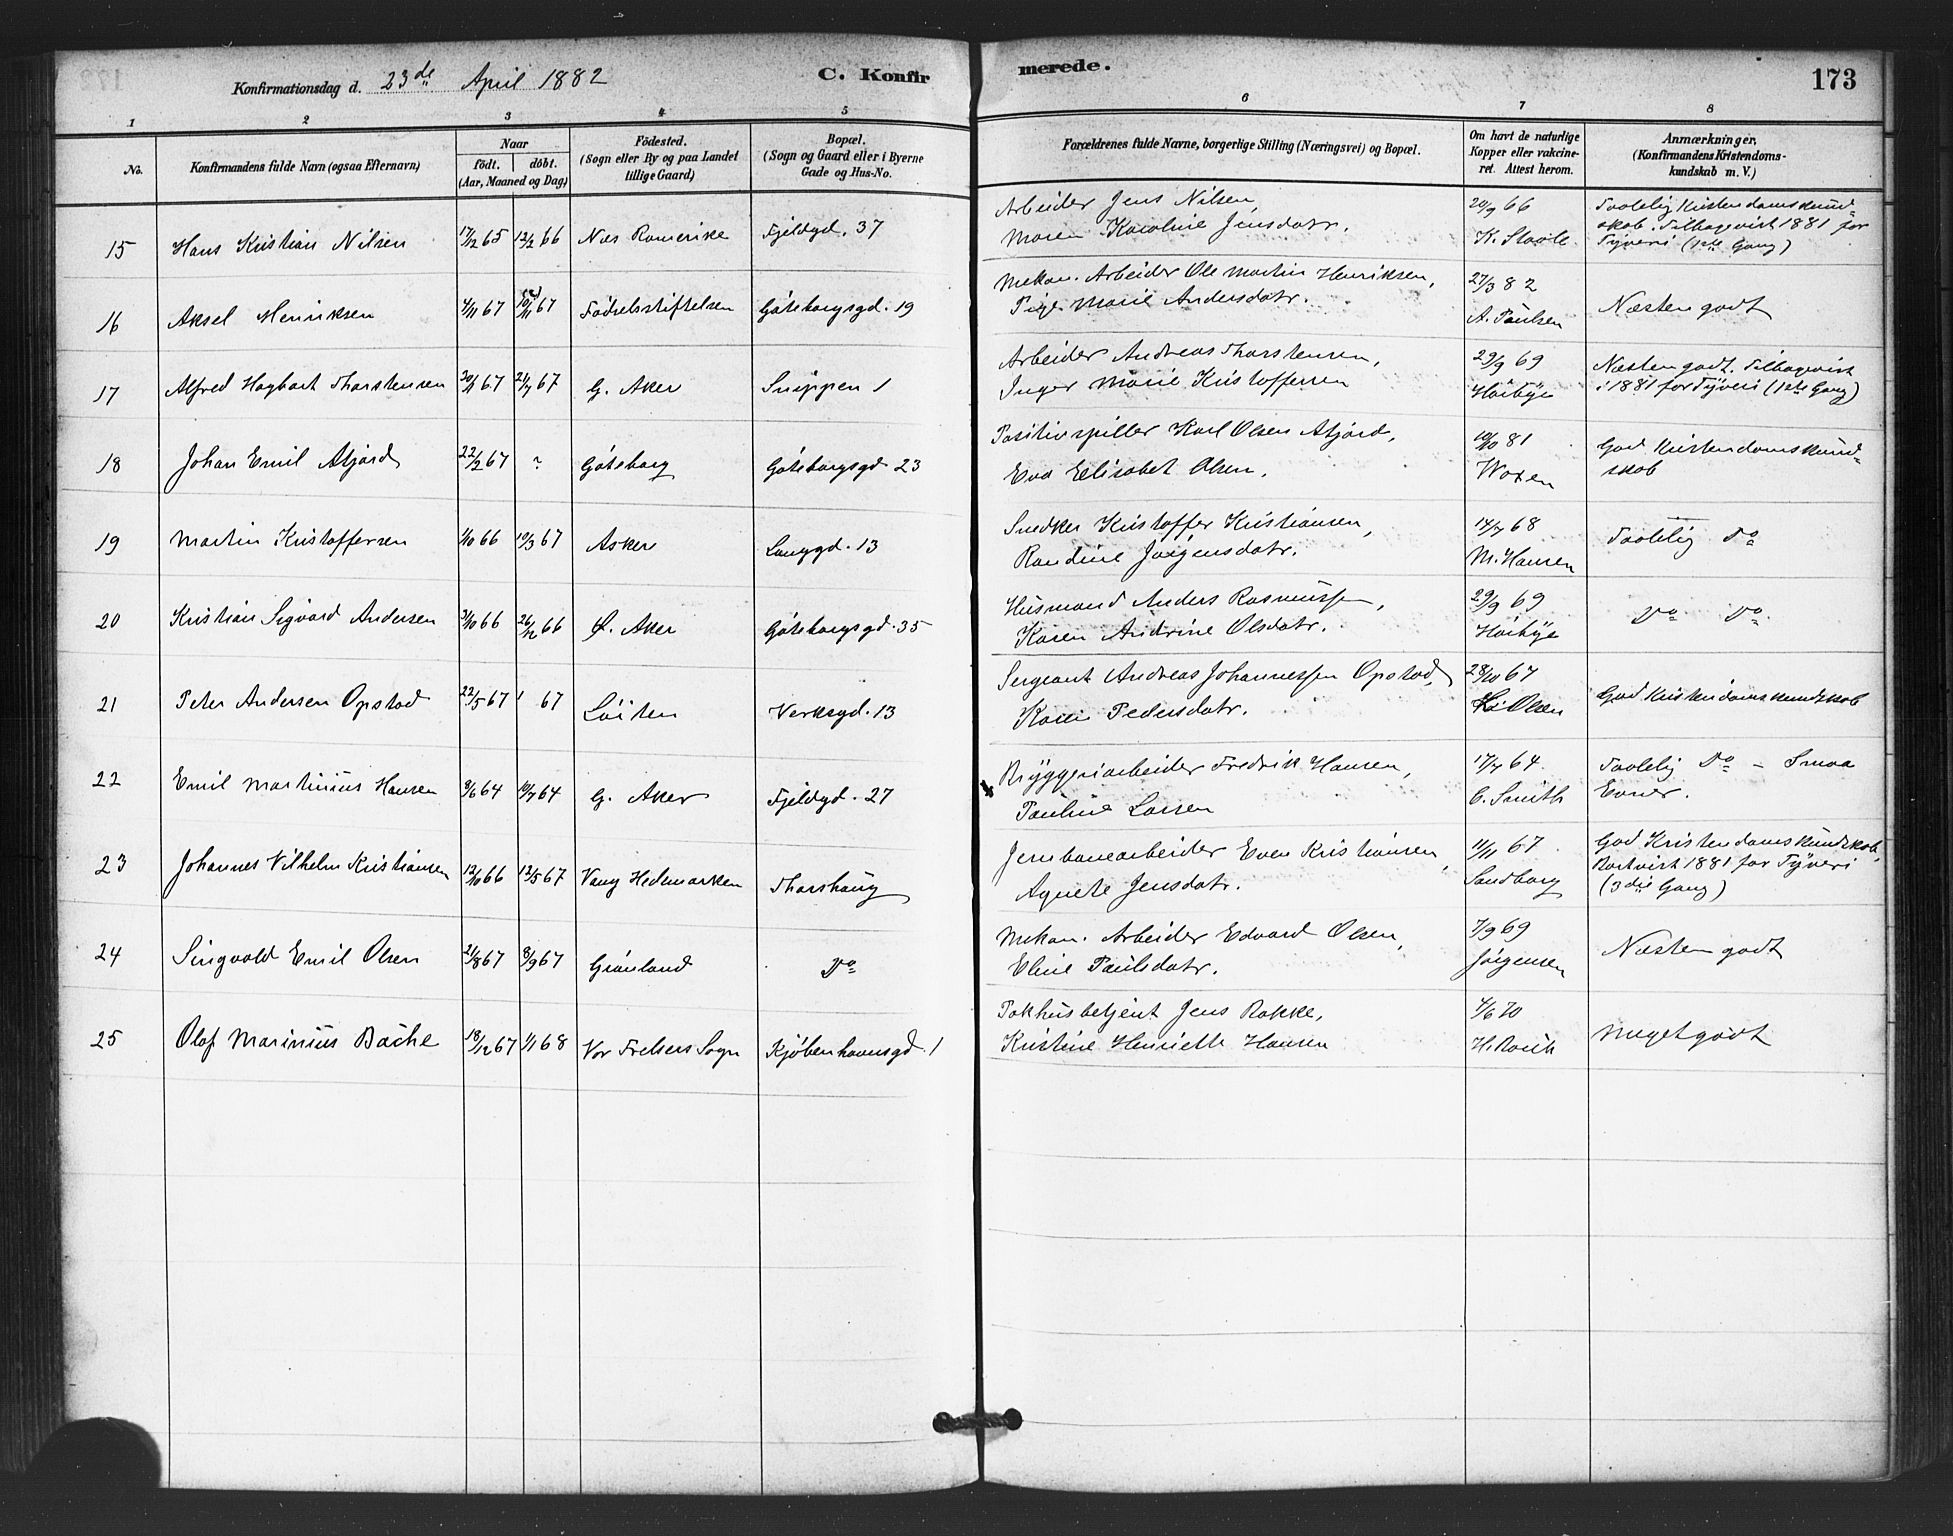 Konfirmationsdag d. 23de April 1882
C. Konfirmerede.
173
1 2 3 4 5 6 7 8
No.
Konfirmandens fulde Navn (ogsaa Efternavn)
Naar
födt. döbt.
(Aar, Maaned og Dag.)
Födested.
(Sogn eller By og paa Landet
tillige Gaard.)
Bopæl.
(Sogn og Gaard eller i Byerne
Gade og Hus-No.
Forældrenes fulde Navne, borgerlige Stilling (Næringsvei) og Bopæl.
Om havt de naturlige
Kopper eller vakcine-
ret. Attest herom.
Anmærkninger.
(Konfirmandens Kristendoms-
kundskab m. V.)
15 Hans Kristian Nilsen 17/12 65 12/2 66 Næs Romerike Fjeldgd. 37
Arbeider Jens Nilsen,
Maren Karoline Jensdatr.
20/9 66
K. Staale
Taalelig Kristendomskund-
skab. Tilbagevist 1881 for
Tyveri (1ste Gang)
16 Aksel Henriksen 4/11 67 10/11 67 Födselsstiftelsen Göteborgsgd. 19
Mekan. Arbeider Ole Martin Henriksen,
Pige Marie Andersdatr.
27/3 82
A. Paulsen
Næsten godt
17 Alfred Hagbart Tharstensen 30/1 67 21/7 67 G. Aker Snippen 1
Arbeider Andreas Tharstensen,
Inger Marie Kristoffersen
29/9 69
Höibye
Næsten godt. Tilbagevist
i 1881 for Tyveri (1ste Gang)
18 Johan Emil Afjord 22/2 67 ? Göteborg Göteborgsgd 23
Positivspiller Karl Olsen Afjord,
Eva Elisabet Olsen.
10/10 81
Woxen
God Kristendomskund-
skab
19 Martin Kristoffersen 1/10 66 19/3 67 Asker Langgd. 13
Snedker Kristoffer Kristiansen,
Randine Jörgensdatr.
14/7 68
M. Hansen
Taalelig Do
20 Kristian Sigvard Andersen 3/10 66 26/12 66 Ø. Aker Göteborgsgd. 35
Husmand Anders Rasmussen,
Karen Andrine Olsdatr.
29/9 69
Höibye
Do Do
21 Peter Andersen Opstad 22/5 67 67 Löiten Verksgd. 13
Sergeant Andreas Johannessen Opstad,
Kari Pedersdatr.
28/10 67
Olsen
God Kristendomskundskab
22 Emil Martinius Hansen 9/6 64 10/7 64 G. Aker Fjeldgd. 27
Bryggeriarbeider Fredrik Hansen,
Pauline Larsen
17/7 64
C. Smith
Taalelig Do – Smaa
Evner.
23 Johannes Vilhelm Kristiansen 12/10 66 12/5 67 Vang Hedemarken Tharshaug
Jernbanearbeider Even Kristiansen,
Agnete Jensdatr.
11/11 67
Sandberg
God Kristendomskundskab,
Bortvist 1881 for Tyveri
(3die Gang)
24 Singvald Emil Olsen 21/8 67 8/9 67 Grönland Do
Mekan. Arbeider Edvard Olsen,
Eline Paulsdatr.
7/9 69
Jörgensen
Næsten godt
25 Olaf Marinius Bache 18/12 67 1/1 68 Vor Frelsers Sogn Kjøbenhavnsgd. 1
Pakhusbetjent Jens Bakke,
Kristine Henriette Hansen
4/6 70
Meget godt